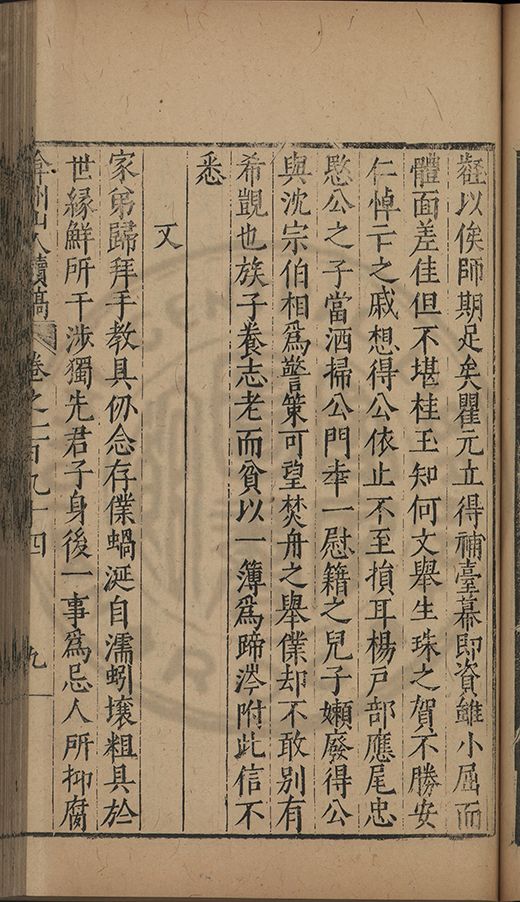 蓰以俟師期足矣瞿元立得補臺幕即資雖小屈而
體面差佳但不堪桂玉知何文舉生珠之賀不勝安
仁悼亡之戚想得公依止不至損耳楊戶部應尾忠
愍公之子當洒掃公門幸一慰籍之兒子嬾廢得公
與沈宗伯相為警策可望焚舟之舉僕却不敢別有
希覬也族子養志老而貧以一簿為蹄涔附此信不
悉
又
家弟歸拜手教具仞念存僕蝸涎自濡蚓壤粗具於
世緣鮮所干涉獨先君子身後一事為忌人所抑腐
弇州山人續稿 卷之一百九十四 九